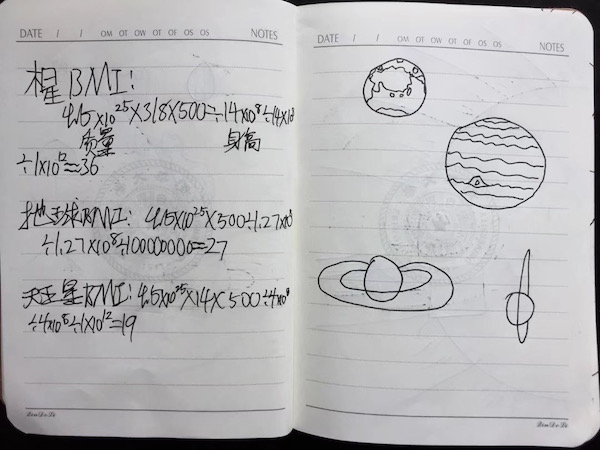 DATE / / OM OT OW OT OF OS OS NOTES
木星BMI:
4.15×10²⁵×318×500÷14×10⁸÷14×10⁸
质量 身高
÷1×10¹²≈36
地球BMI: 4.15×10²⁵×500÷1.27×10⁸
÷1.27×10⁸÷10000000=27
天王星BMI: 4.15×10²⁵×14×500÷4×10⁸
÷4×10⁸÷1×10¹²=19
DATE / / OM OT OW OT OF OS OS NOTES